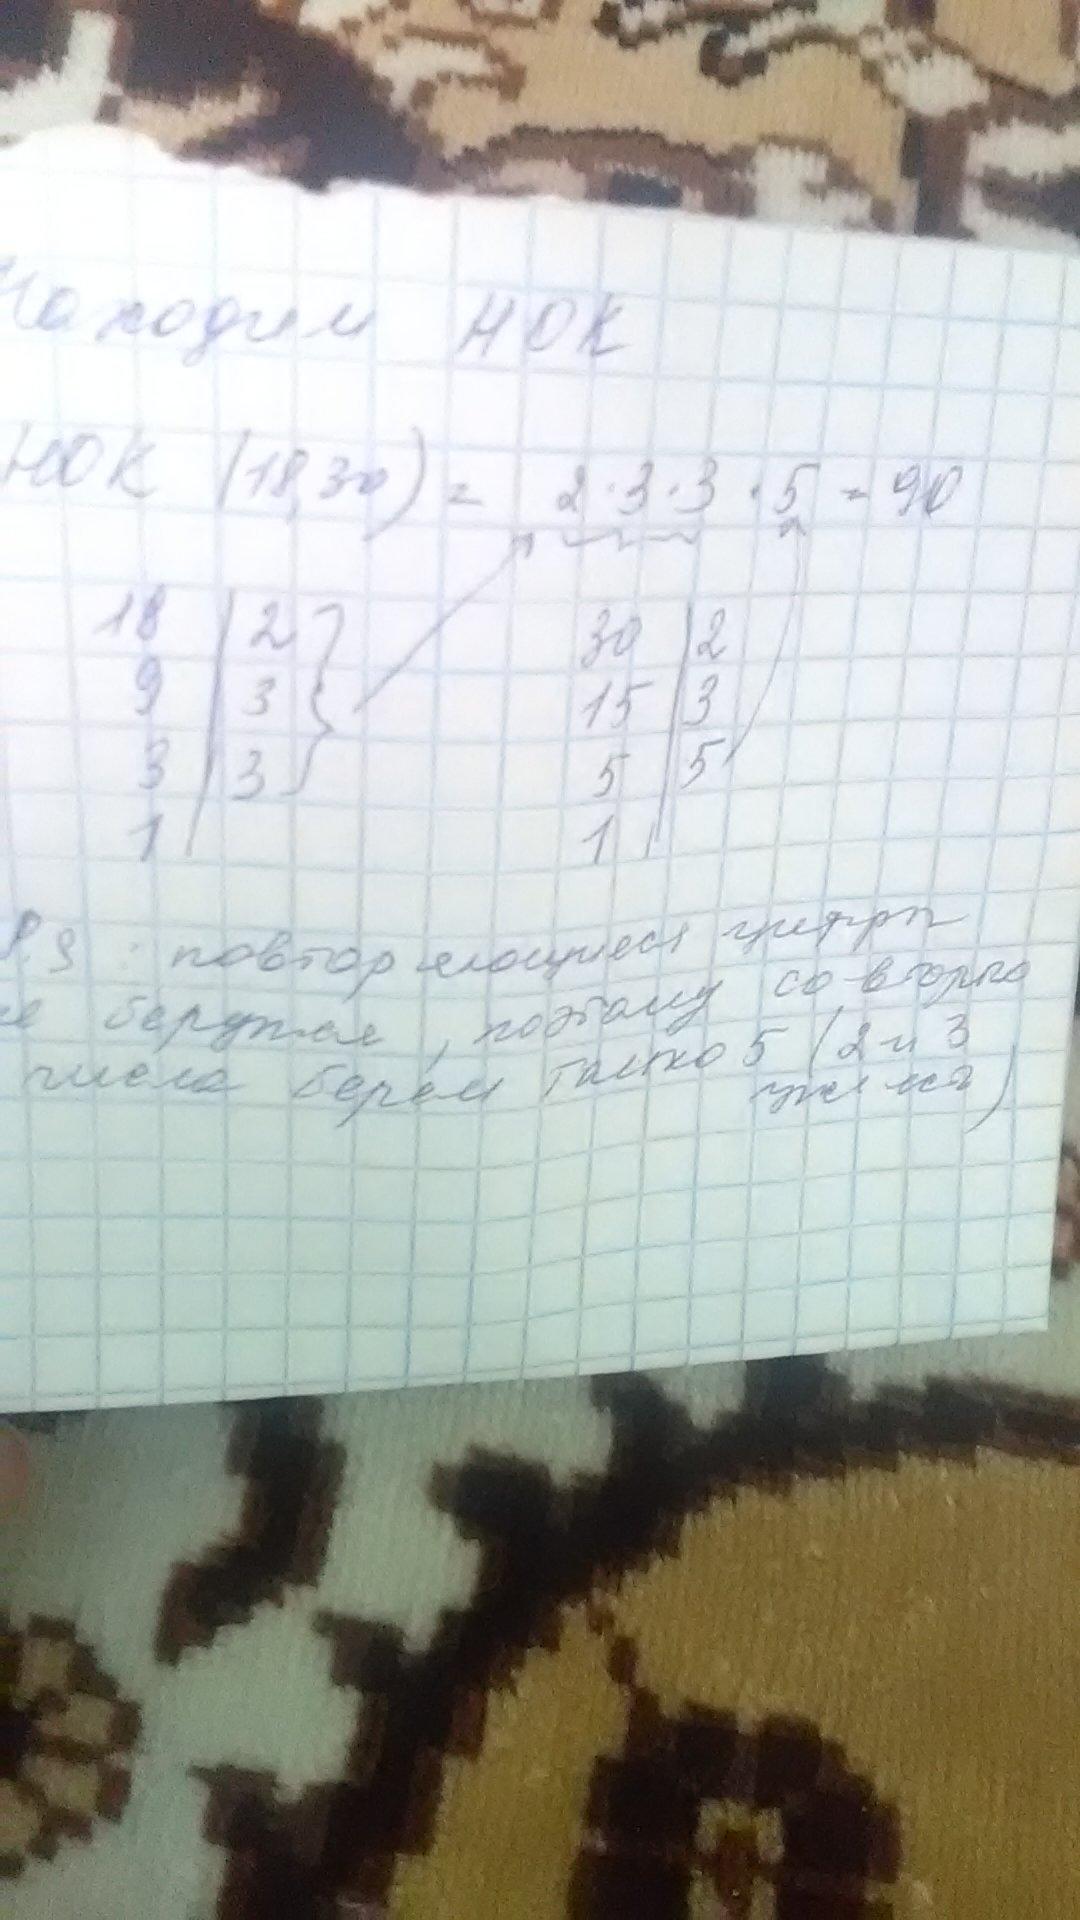 Находим НОК
НОК (18,30) = 2·3·3·5 = 90
18 | 2 30 | 2
9 | 3 15 | 3
3 | 3 5 | 5
1 | 1 |
: повторяющиеся цифры
берутся, поэтому со второго
числа берём только 5 (2 и 3
уже есть)